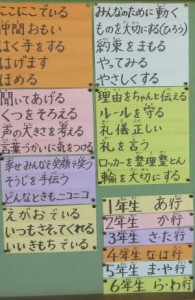 ここにこている
仲間おもい
はく手をする
はげます
ほめる
聞いてあげる
くつをそろえる
声の大きさを考える
言葉づかいに気をつける
幸せみんなで笑顔で笑う
そうじを手伝う
どんなときもニコニコ
えがおでいる
いつもささえてくれる
いいきもちでいる
みんなのために動く
ものを大切にする(ひろう)
約束をまもる
やってみる
やさしくする
理由をちゃんと伝える
ルールを守る
礼儀正しい
礼を言う
ロッカーを整理整とん
輪を大切にする
1年生 あ行
2年生 か行
3年生 さた行
4年生 なは行
5年生 まや行
6年生 らわ行